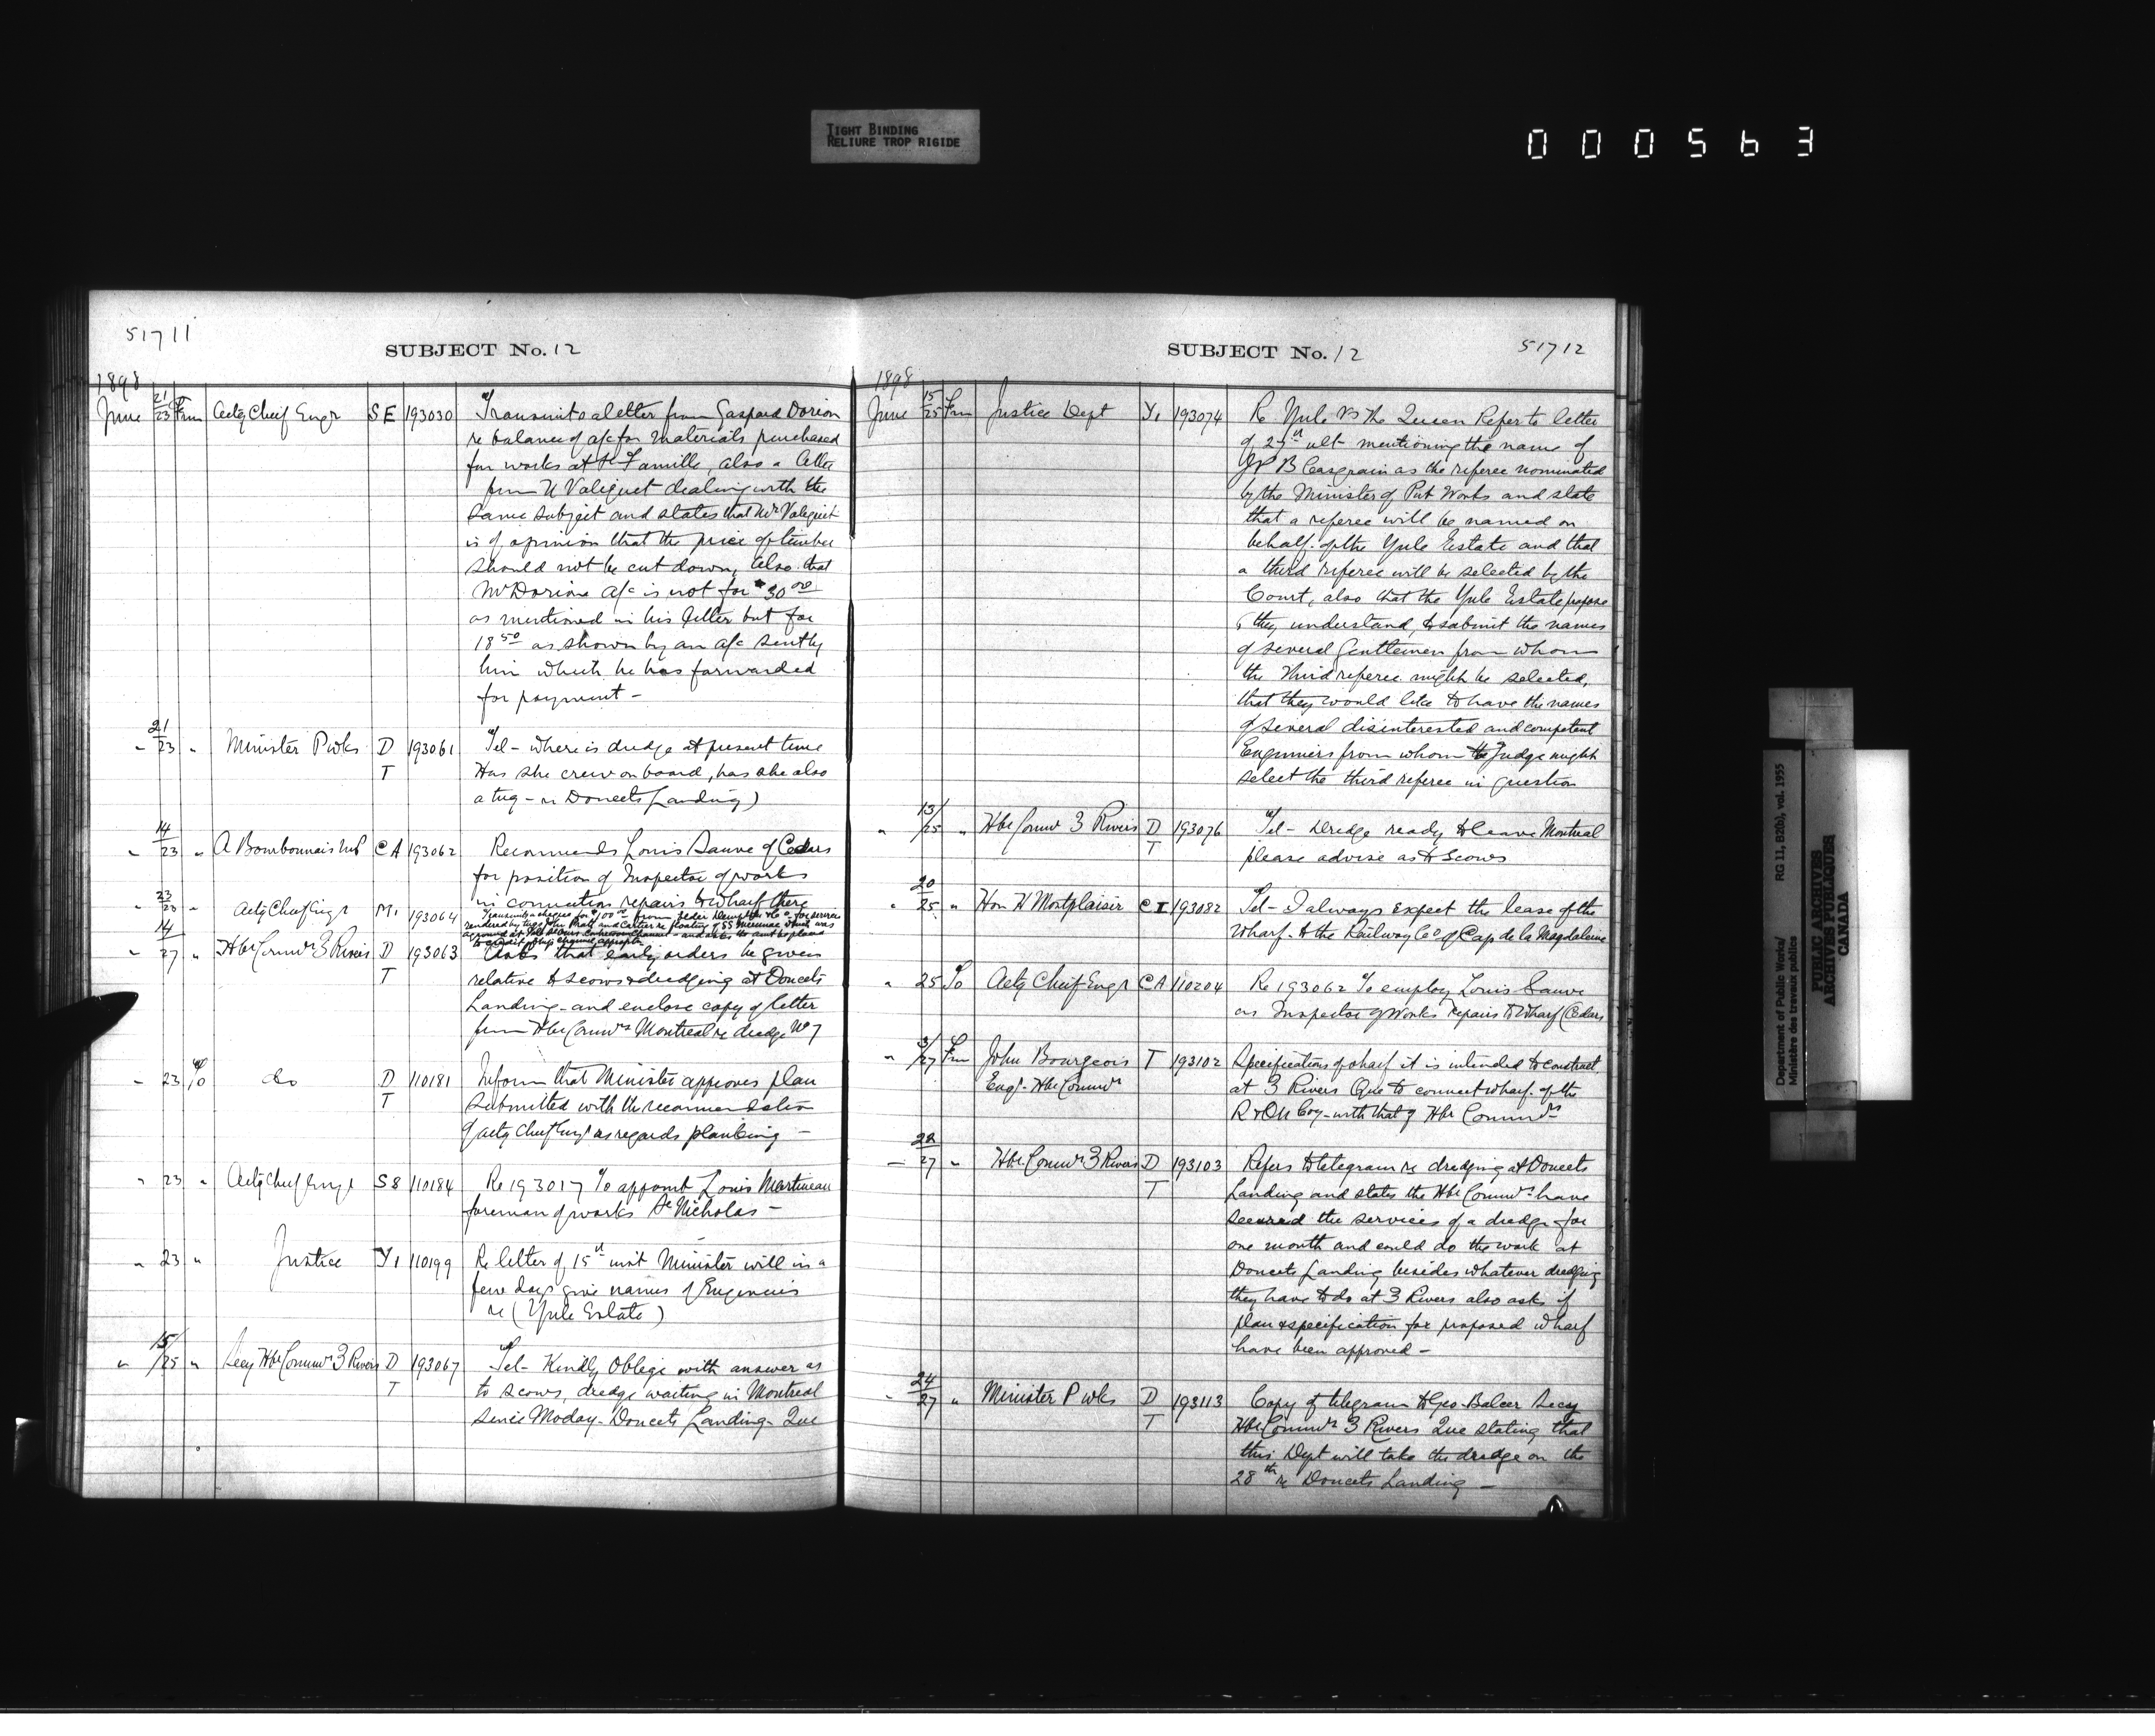 TIGHT BINDING
RELIURE TROP RIGIDE
000563
51711
SUBJECT No. 12
1898
June 21/23 From Actg Chief Engr S E 193030 Transmits a letter from Gaspard Dorion
re balance of a/c for materials purchased
for works at Ste Famille, also a letter
from U Valiquet dealing with the
same subject and states that Mr Valiquet
is of opinion that the price of timber
should not be cut down, also that
Mr Dorions a/c is not for $30 00
as mentioned in his letter but for
18 50 as shown by an a/c sent by
him which he has forwarded
for payment -
" 21/23 " Minister P wks D T 193061 Tel - where is dredge at present time
Has she crew on board, has she also
a tug - re Doucets Landing)
" 14/23 " A Bourbonnais M P C A 193062 Recommends Louis Sauve of Cedars
for position of Inspector of works
in connection repairs to wharf there
" 23/23 " Actg Chief Engr M1 193064 Transmits cheque for $100 00 from for services
rendered by tugs John Pratt and Cartier re floating of SS which was
aground at channel - and asks the amt be placed
to credit of ship channel appropn
" 14/27 " Hbr Commrs 3 Rivers D T 193063 Asks that early orders be given
relative to scows & dredging at Doucets
Landing - and enclose copy of letter
from Hbr Commrs Montreal re dredge No 7
" 23 To do D T 110181 Inform that Minister approves plan
submitted with the recommendation
of actg Chief Engr as regards planking -
" 23 " Actg Chief Engr S 8 110184 Re 193017 To appoint Louis Martineau
foreman of works St Nicholas -
" 23 " Justice Y1 110199 Re letter of 15th inst Minister will in a
few days give names of Engineers
re (Yule Estate)
" 15/25 " Secy Hbr Commrs 3 Rivers D T 193067 Tel - Kindly Oblige with answer as
to scows, dredge waiting in Montreal
since Moday - Doucets Landing - Que
SUBJECT No. 12
51712
1898
June 15/25 From Justice Dept Y1 193074 Re Yule vs The Queen Refer to letter
of 27th ult mentioning the name of
J P B Casgrain as the referee nominated
by the Minister of Pub Works and state
that a referee will be named on
behalf of the Yule Estate and that
a third referee will be selected by the
Court, also that the Yule Estate propose
, they understand, to submit the names
of several Gentlemen from whom
the Third referee might be selected,
that they would like to have the names
of several disinterested and competent
Engineers from whom the Judge might
select the third referee in question
" 13/25 " Hbr Commrs 3 Rivers D T 193076 Tel - Dredge ready to leave Montreal
please advise as to Scows
" 20/25 " Hon H Montplaisir C I 193082 Tel - I always expect the lease of the
Wharf to the Railway Co of Cap de la Magdaleine
" 25 To Actg Chief Engr C A 110204 Re 193062 To employ Louis Sauve
as Inspector of Works repairs to Wharf (Cedars
" 3/27 From John Bourgeois T 193102 Specification of wharf it is intended to construct
Engr Hbr Commrs at 3 Rivers Que to connect wharf of the
R & O N Coy - with that of Hbr Commrs
" 22/27 " Hbr Commrs 3 Rivers D T 193103 Refers to telegram re dredging at Doucets
Landing and states the Hbr Commrs have
secured the services of a dredge for
one month and could do the work at
Doucets Landing besides whatever dredging
they have to do at 3 Rivers also asks if
plan & specification for proposed wharf
have been approved -
" 24/27 " Minister P wks D T 193113 Copy of telegram to Geo Balcer Secy
Hbr Commrs 3 Rivers Que stating that
this Dept will take the dredge on the
28th re Doucets Landing -
Department of Public Works/
Ministère des travaux publics
RG 11, B2(b), vol. 1955
PUBLIC ARCHIVES
ARCHIVES PUBLIQUES
CANADA